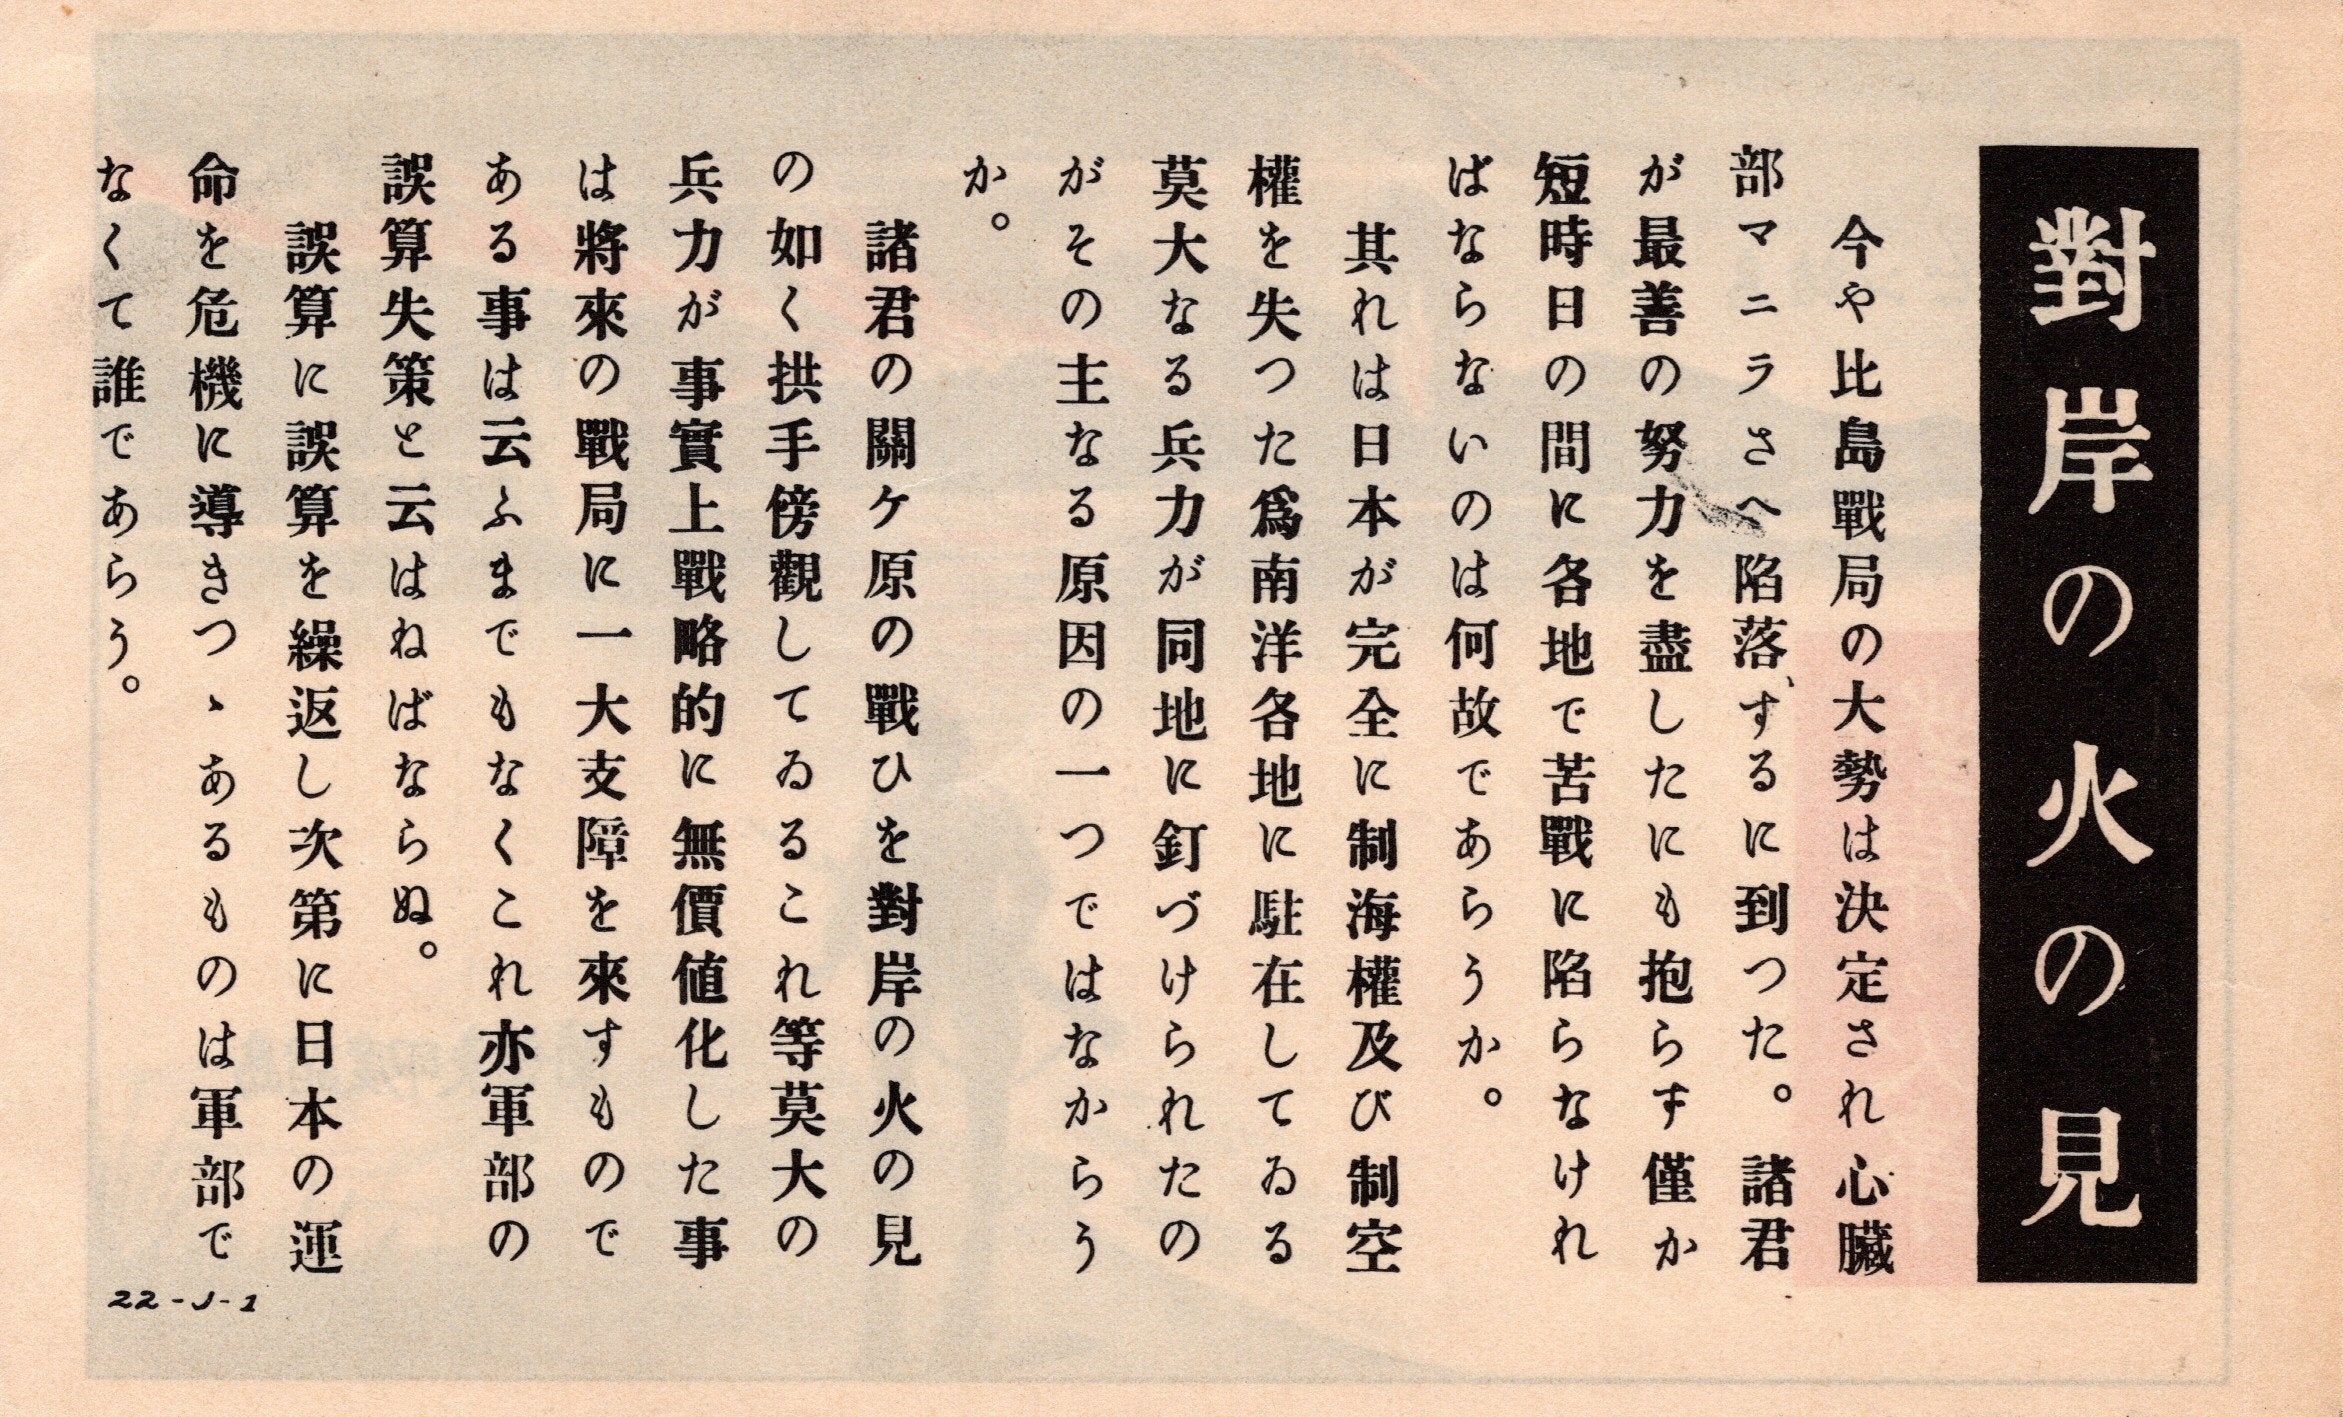 對岸の火の見
今や比島戰局の大勢は決定され心臓
部マニラさへ陷落するに到つた。諸君
が最善の努力を盡したにも抱らず僅か
短時日の間に各地で苦戰に陷らなけれ
ばならないのは何故であらうか。
其れは日本が完全に制海權及び制空
權を失つた爲南洋各地に駐在してゐる
莫大なる兵力が同地に釘づけられたの
がその主なる原因の一つではなからう
か。
諸君の關ケ原の戰ひを對岸の火の見
の如く拱手傍觀してゐるこれ等莫大の
兵力が事實上戰略的に無價値化した事
は將來の戰局に一大支障を來すもので
ある事は云ふまでもなくこれ亦軍部の
誤算失策と云はねばならぬ。
誤算に誤算を繰返し次第に日本の運
命を危機に導きつゝあるものは軍部で
なくて誰であらう。
22-J-1